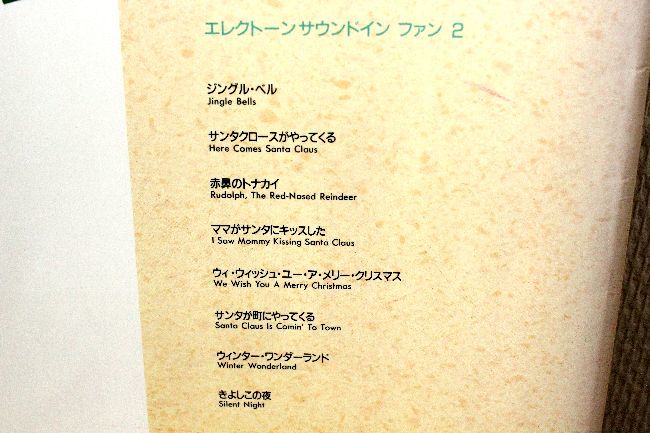 エレクトーンサウンドイン ファン 2
ジングル・ベル
Jingle Bells
サンタクロースがやってくる
Here Comes Santa Claus
赤鼻のトナカイ
Rudolph, The Red-Nosed Reindeer
ママがサンタにキッスした
I Saw Mommy Kissing Santa Claus
ウィ・ウィッシュ・ユー・ア・メリー・クリスマス
We Wish You A Merry Christmas
サンタが町にやってくる
Santa Claus Is Comin' To Town
ウィンター・ワンダーランド
Winter Wonderland
きよしこの夜
Silent Night